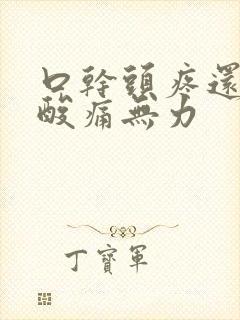 口幹頭疼還
酸痛無力
丁寶軍